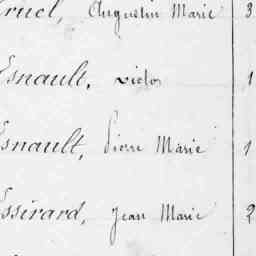 ruel, Augustin Marie 3
Esnault, victor 1
Esnault, Pierre Marie 1
Essirard, Jean Marie 2